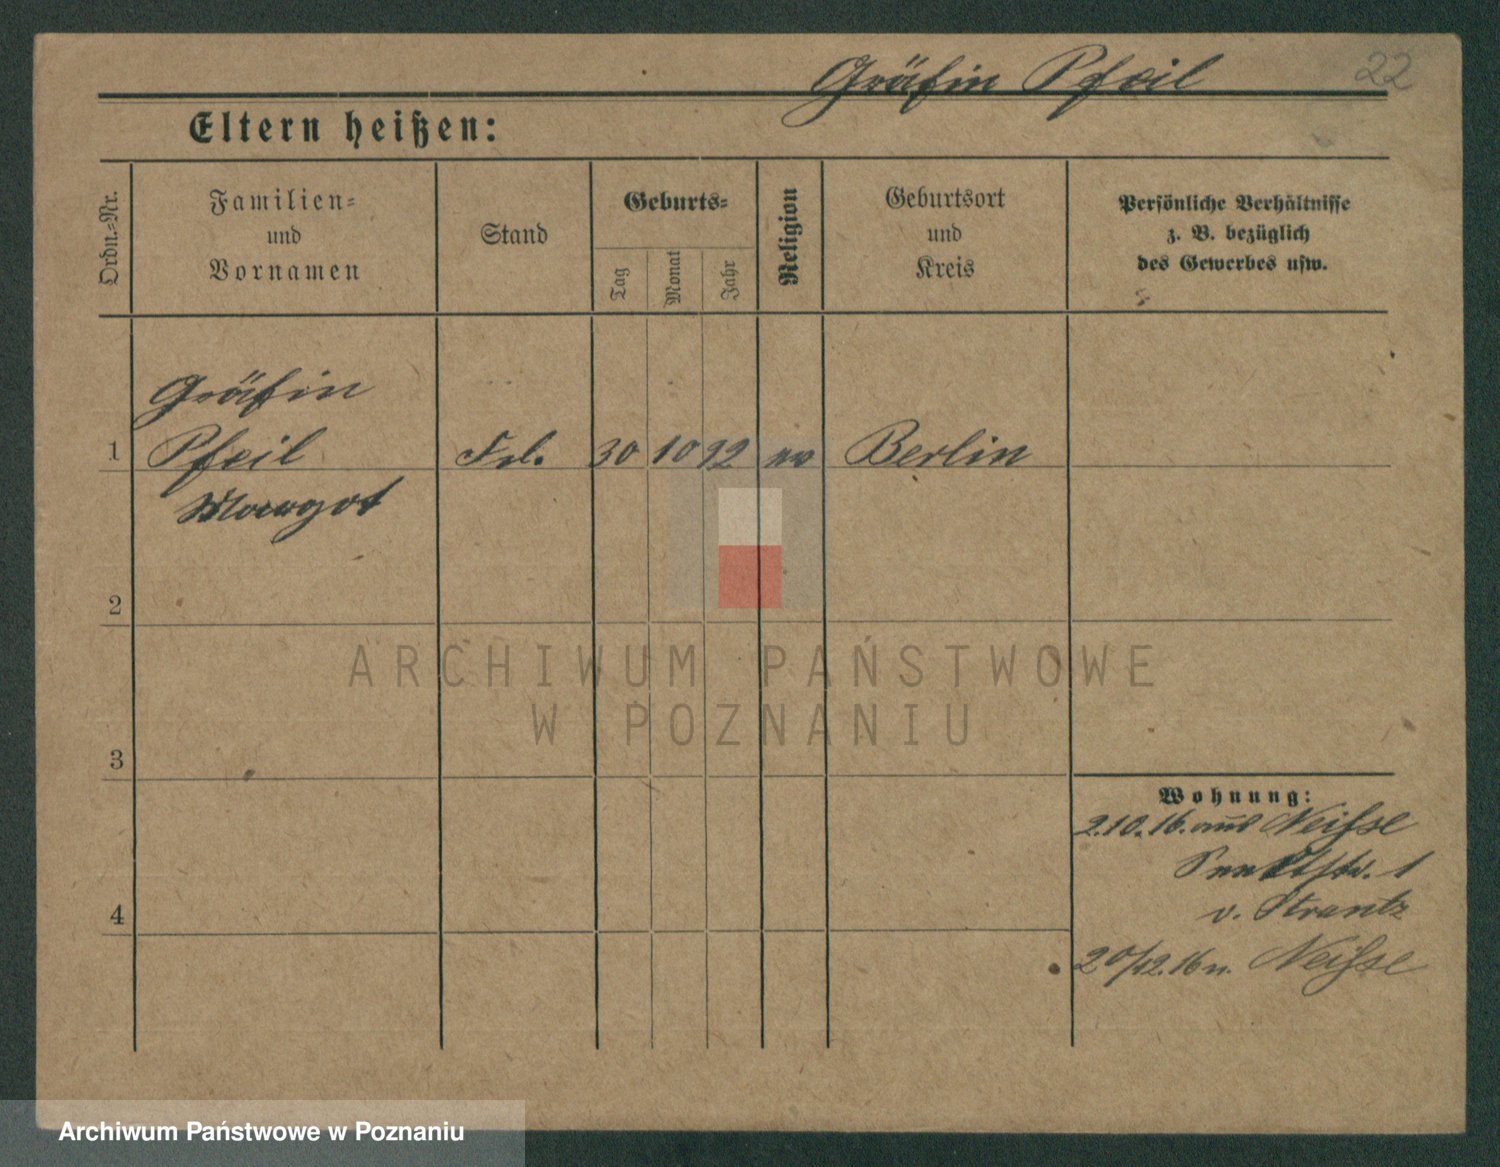 Gräfin Pfeil
22
Eltern heißen:
Ordn.-Nr.
Familien-
und
Vornamen
Stand
Geburts-
Tag
Monat
Jahr
Religion
Geburtsort
und
Kreis
Persönliche Verhältnisse
z. B. bezüglich
des Gewerbes usw.
Gräfin
1 Pfeil Frl. 30 10 92 ev Berlin
Margot
2
3
4
Wohnung:
2.10.16. aus Neisse
1
v. Strantz
20/12.16 n. Neisse
ARCHIWUM PAŃSTWOWE
W POZNANIU
Archiwum Państwowe w Poznaniu